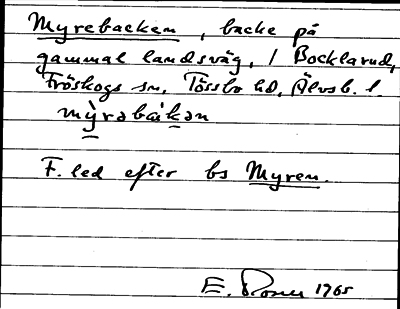 Myrebacken, backe på
gammal landsväg, / Bocklarud,
Fröskogs sn, Tössbo hd, Älvsb. l.
my̆rəbákən
F. led efter bs Myren.
E. 1965